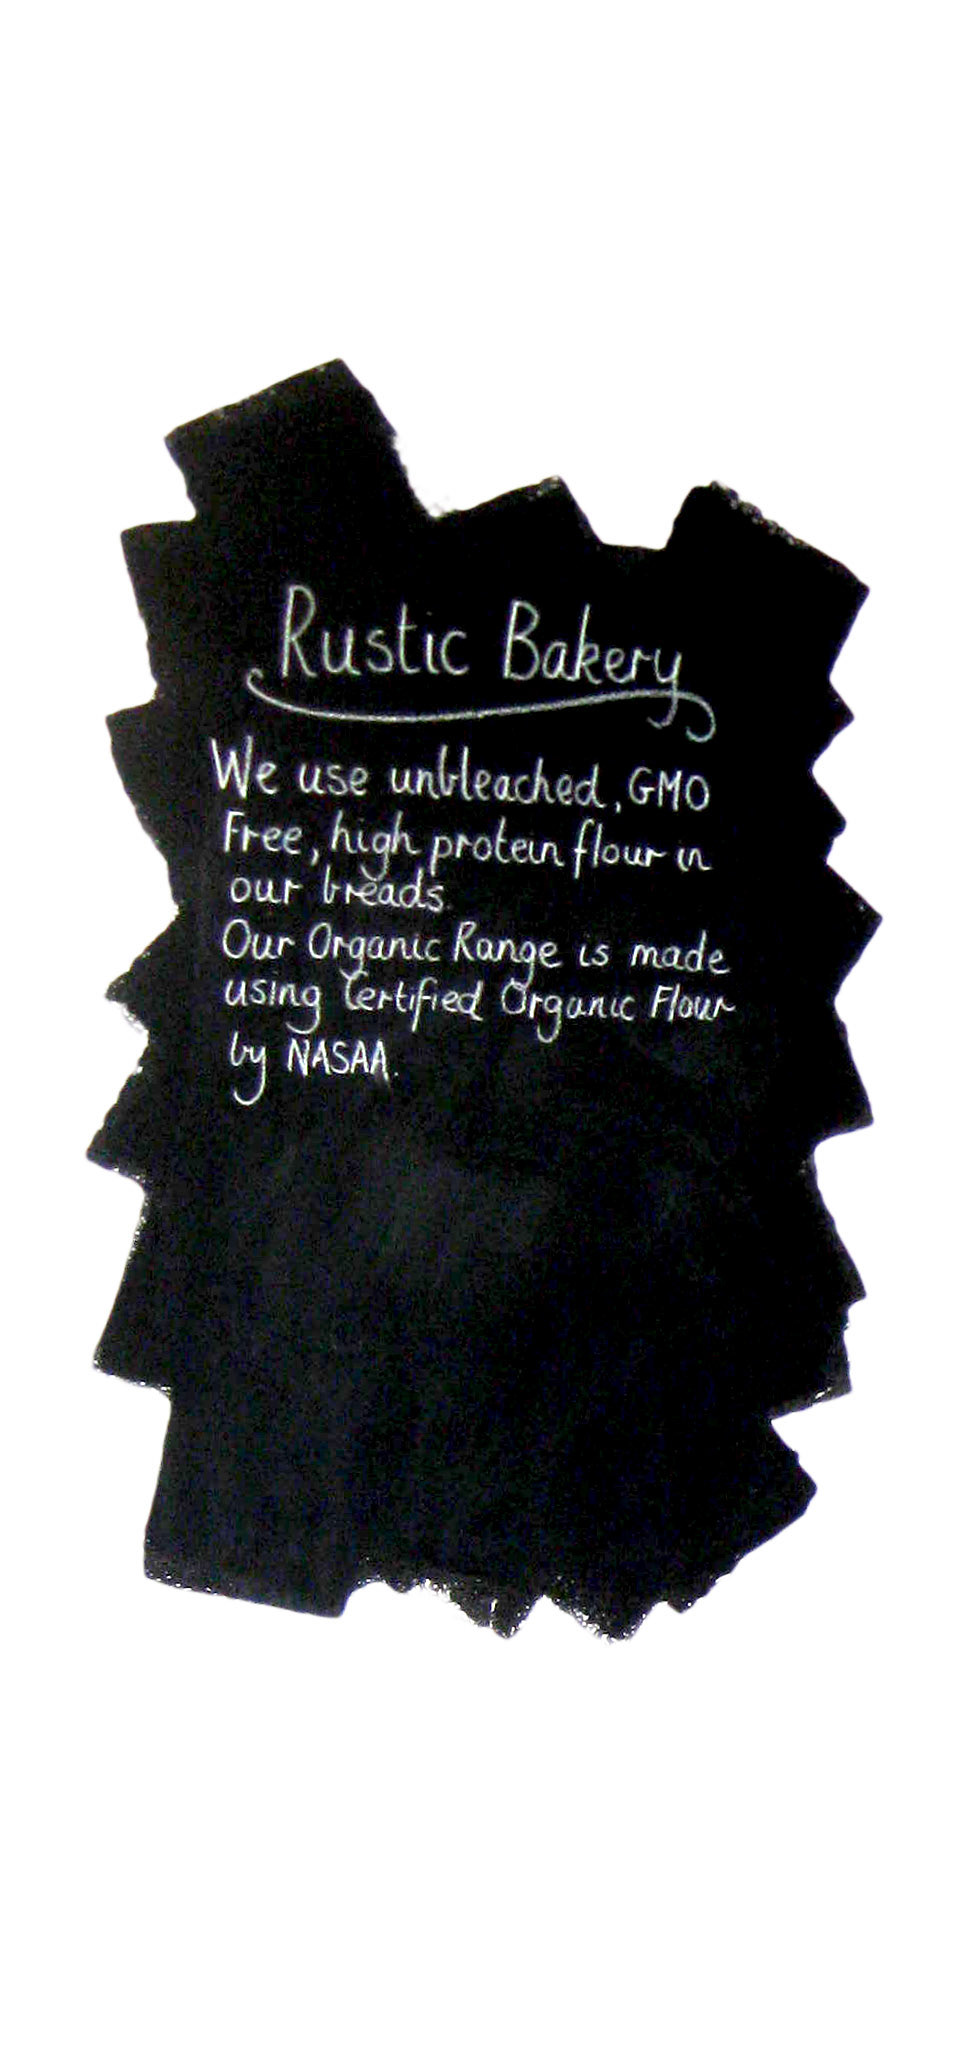 Rustic Bakery
We use unbleached, GMO
Free, high protein flour in
our breads.
Our Organic Range is made
using Certified Organic Flour
by NASAA.